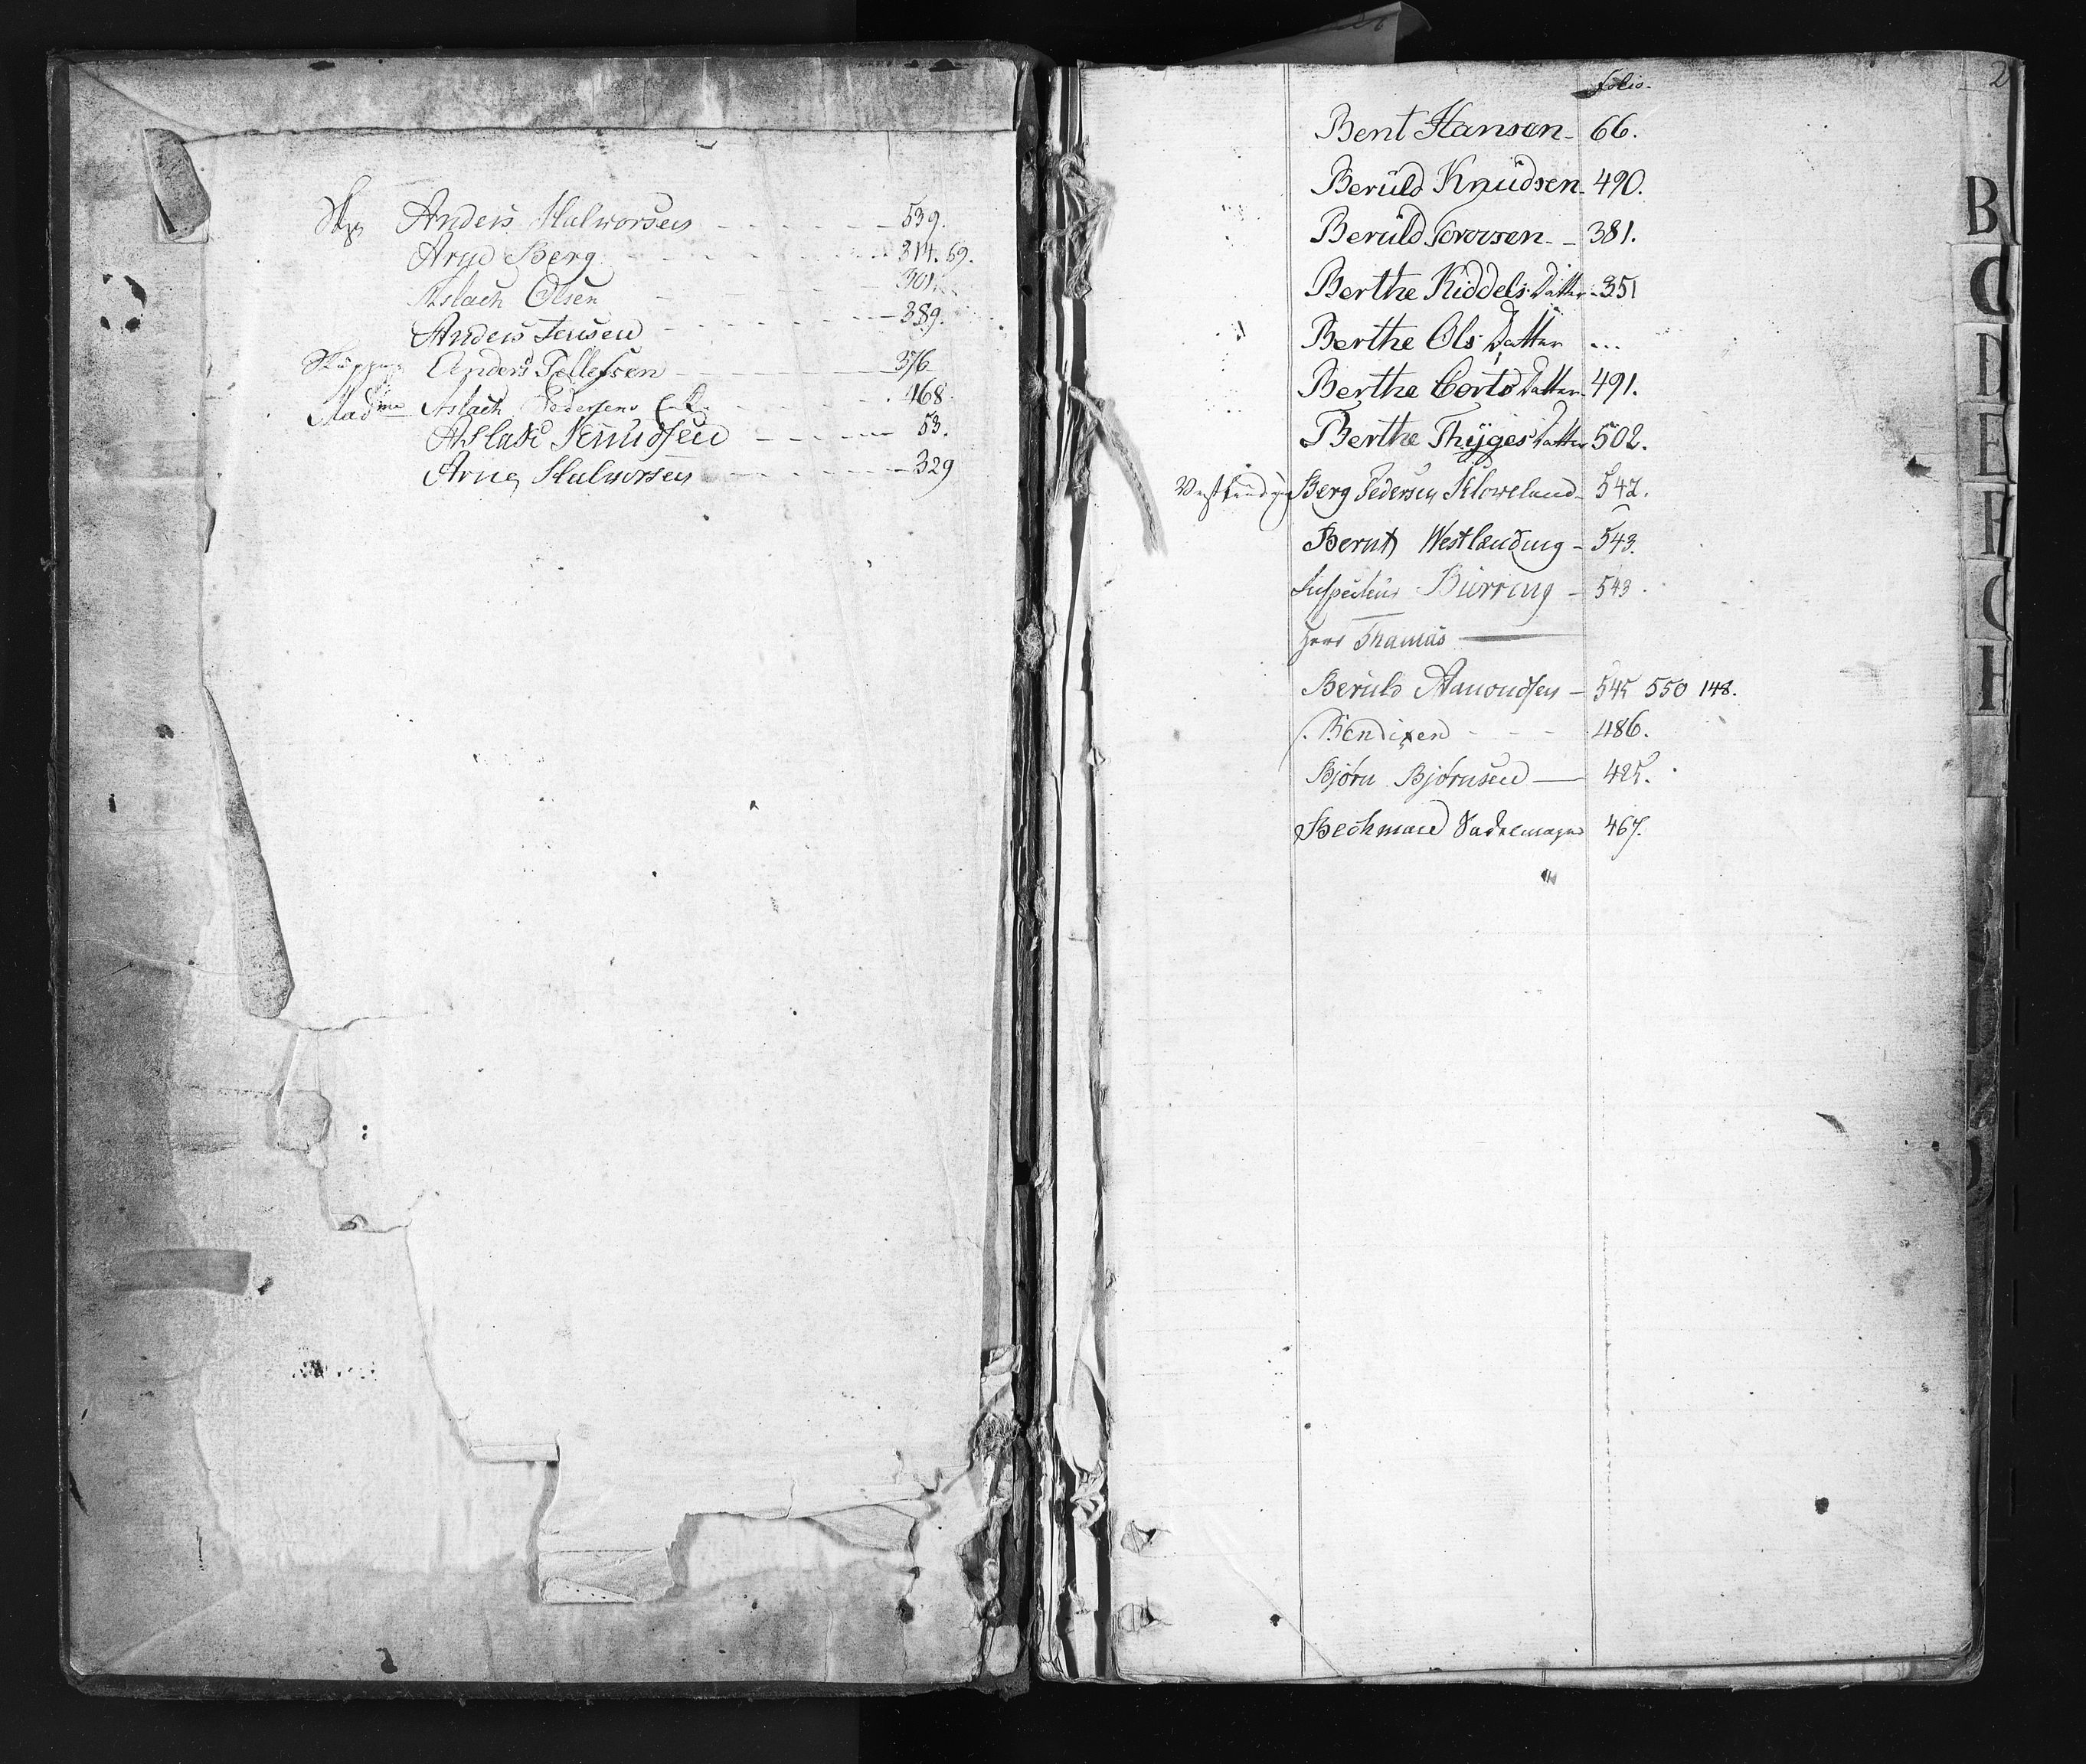 Anders Halworsen 539.
Arnd Berg 314. 69.
Aslach Olsen 301
Anders Jensen 389.
Anders Tellefsen 376
Mad<sup>me</sup> Aslach Pedersens 468.
Aslak Knudsen 53.
Arne Halworsen 329
2
folio.
Bent Hansen - 66.
Berüld Knüdsen - 490.
Berüld Torersen - 381.
Berthe Kiddels Datter - 351
Berthe Ols Datter ...
Berthe Corts Datter 491.
Berthe Thÿges Datter 502.
Berg Pedersen Kloweland - 542.
Bernt Westlænding - 543.
Inspecteur Bürring - 543.
Hans Thamas
Berüld Amondsen - 545 550 148.
Bendixen - - - 486.
Bjørn Bjørnsen — 425.
Bechmand 467.
B
C
D
E
F
G
H